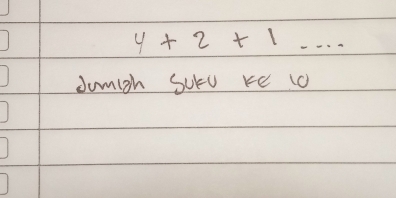 4 + 2 + 1 ....
Jumlah suku ke 10